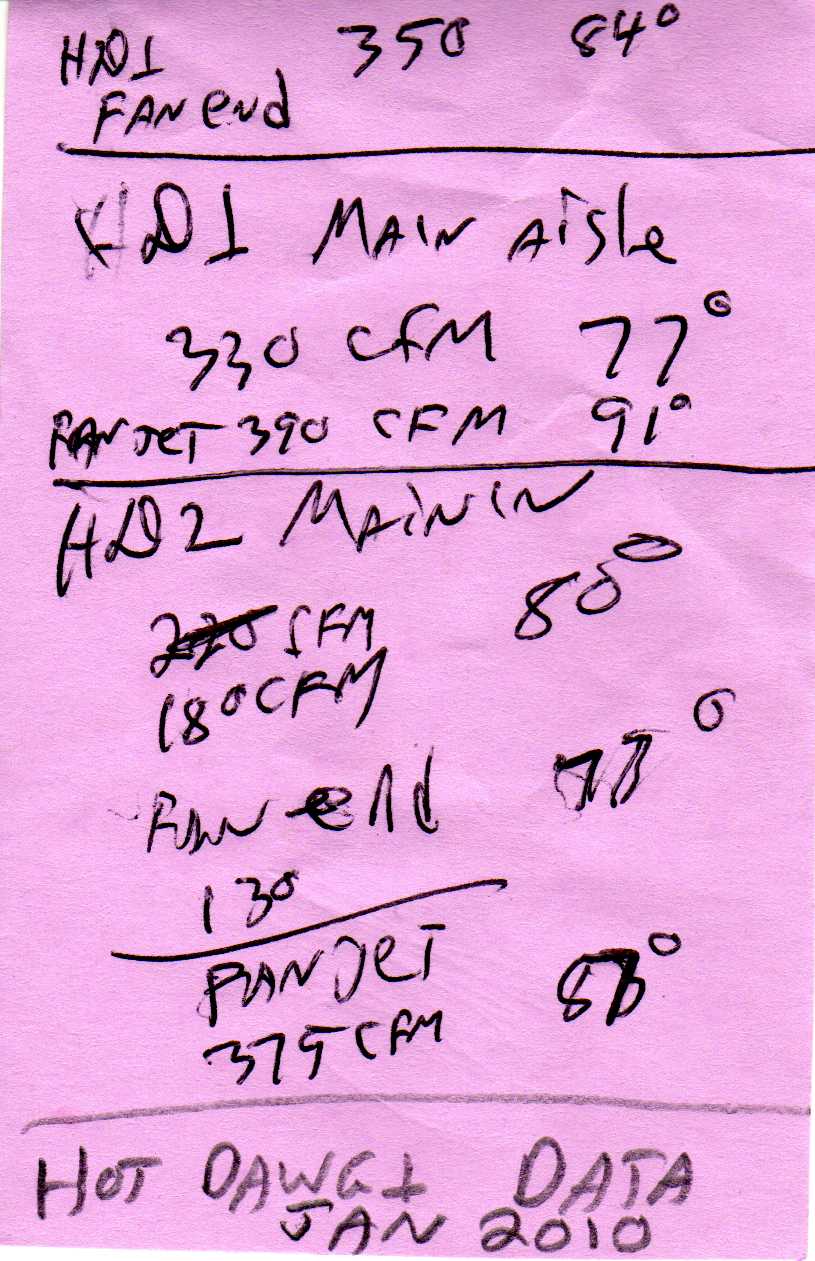 HD1 350 84°
FAN end
HD1 MAIN aisle
330 CFM 77°
FANJET 390 CFM 91°
HD2 MAIN IN
80°
CFM
180 CFM
FAN end 77°
130
FANJET
375 CFM
HOT DAWG1 DATA
JAN 2010